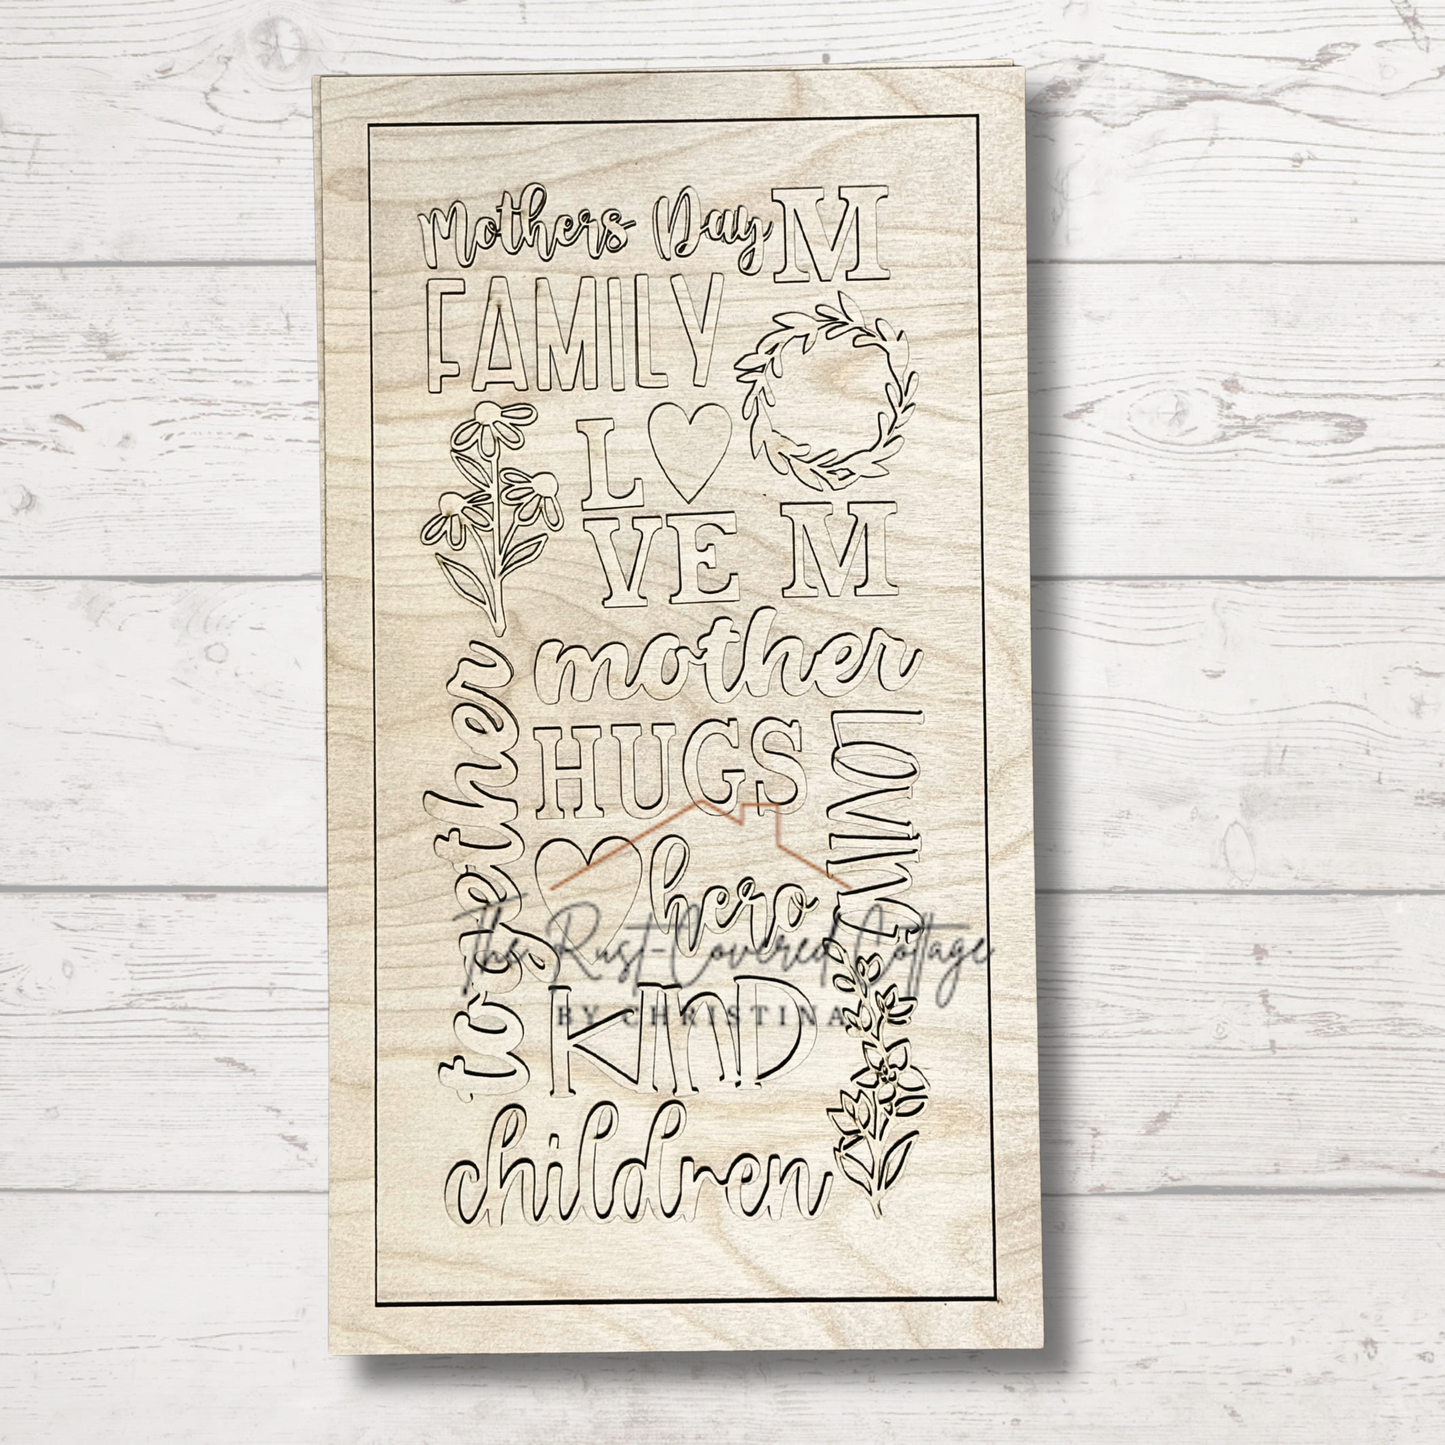 Mothers Day
M
FAMILY
L
VE
M
mother
together
HUGS
LOVING
hero
The Rust-Covered Cottage
BY CHRISTINA
KIND
children